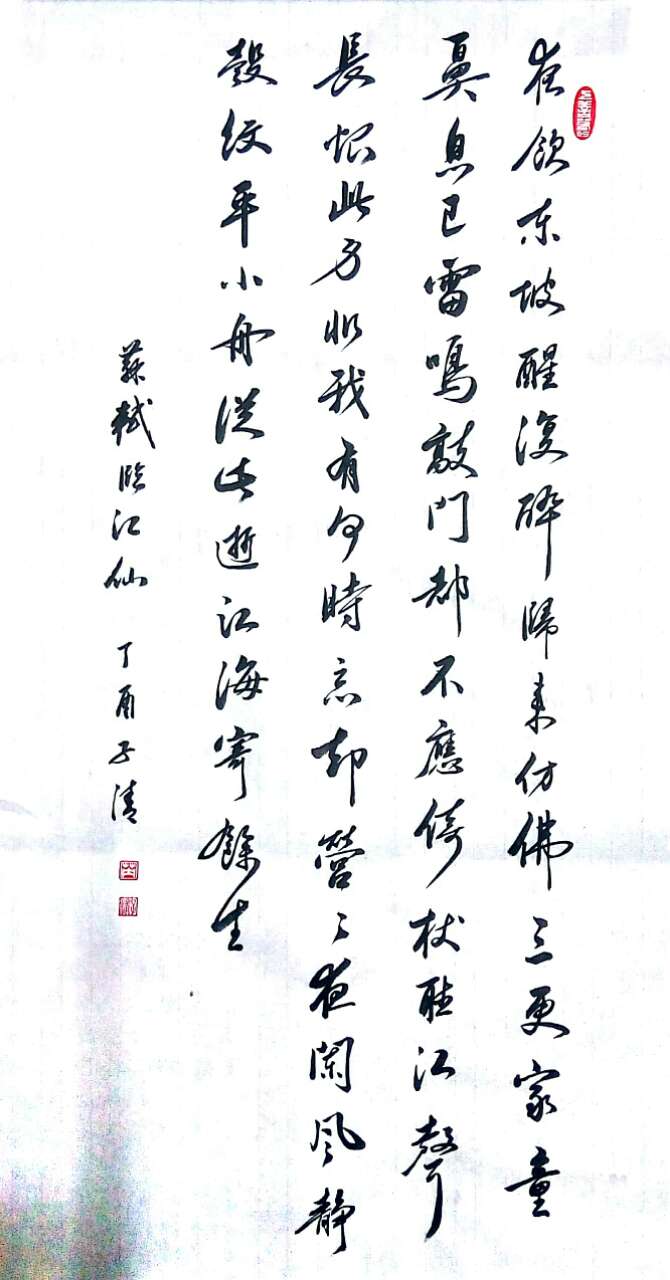 夜飲东坡醒復醉歸来仿佛三更家童
鼻息已雷鳴敲门都不應倚杖聽江聲
長恨此身非我有何時忘却營〻夜闌风静
縠纹平小舟從此逝江海寄餘生
蘇軾临江仙 丁酉子清